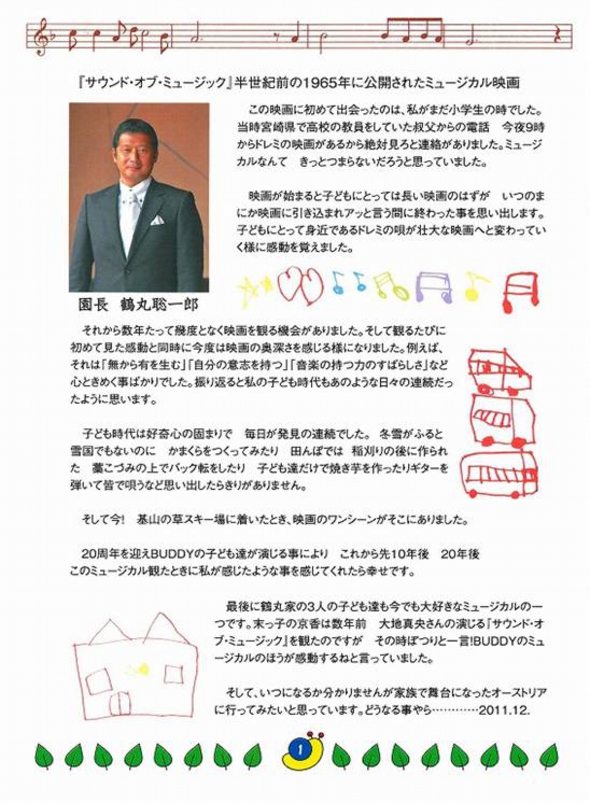 『サウンド・オブ・ミュージック』半世紀前の1965年に公開されたミュージカル映画
この映画に初めて出会ったのは、私がまだ小学生の時でした。
当時宮崎県で高校の教員をしていた叔父からの電話　今夜9時
からドレミの映画があるから絶対見ろと連絡がありました。ミュージ
カルなんて　きっとつまらないだろうと思っていました。
映画が始まると子どもにとっては長い映画のはずが　いつのま
にか映画に引き込まれアッと言う間に終わった事を思い出します。
子どもにとって身近であるドレミの唄が壮大な映画へと変わってい
く様に感動を覚えました。
園長　鶴丸聡一郎
それから数年たって幾度となく映画を観る機会がありました。そして観るたびに
初めて見た感動と同時に今度は映画の奥深さを感じる様になりました。例えば、
それは「無から有を生む」「自分の意志を持つ」「音楽の持つ力のすばらしさ」など
心ときめく事ばかりでした。振り返ると私の子ども時代もあのような日々の連続だっ
たように思います。
子ども時代は好奇心の固まりで　毎日が発見の連続でした。　冬雪がふると
雪国でもないのに　かまくらをつくってみたり　田んぼでは　稲刈りの後に作られ
た　藁こづみの上でバック転をしたり　子ども達だけで焼き芋を作ったりギターを
弾いて皆で唄うなど思い出したらきりがありません。
そして今!　基山の草スキー場に着いたとき、映画のワンシーンがそこにありました。
20周年を迎えBUDDYの子ども達が演じる事により　これから先10年後　20年後
このミュージカル観たときに私が感じたような事を感じてくれたら幸せです。
最後に鶴丸家の3人の子ども達も今でも大好きなミュージカルの一
つです。末っ子の京香は数年前　大地真央さんの演じる『サウンド・オ
ブ・ミュージック』を観たのですが　その時ぽつりと一言!BUDDYのミュ
ージカルのほうが感動するねと言っていました。
そして、いつになるか分かりませんが家族で舞台になったオーストリア
に行ってみたいと思っています。どうなる事やら…………2011.12.
1